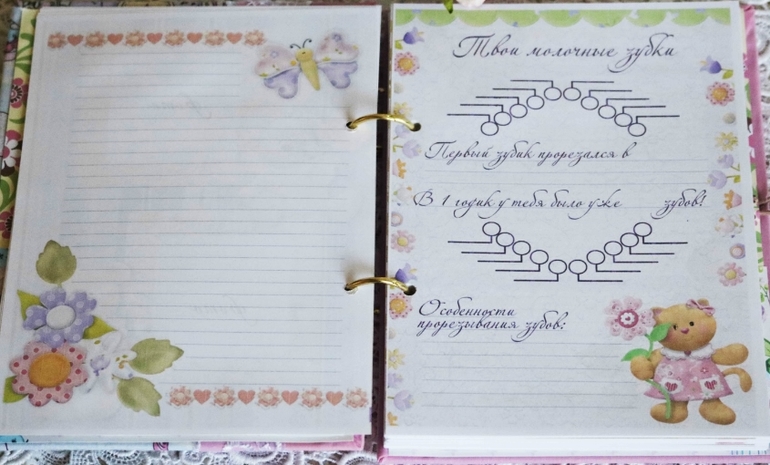 Твои молочные зубки
Первый зубик прорезался в
В 1 годик у тебя было уже зубов!
Особенности
прорезывания зубов: